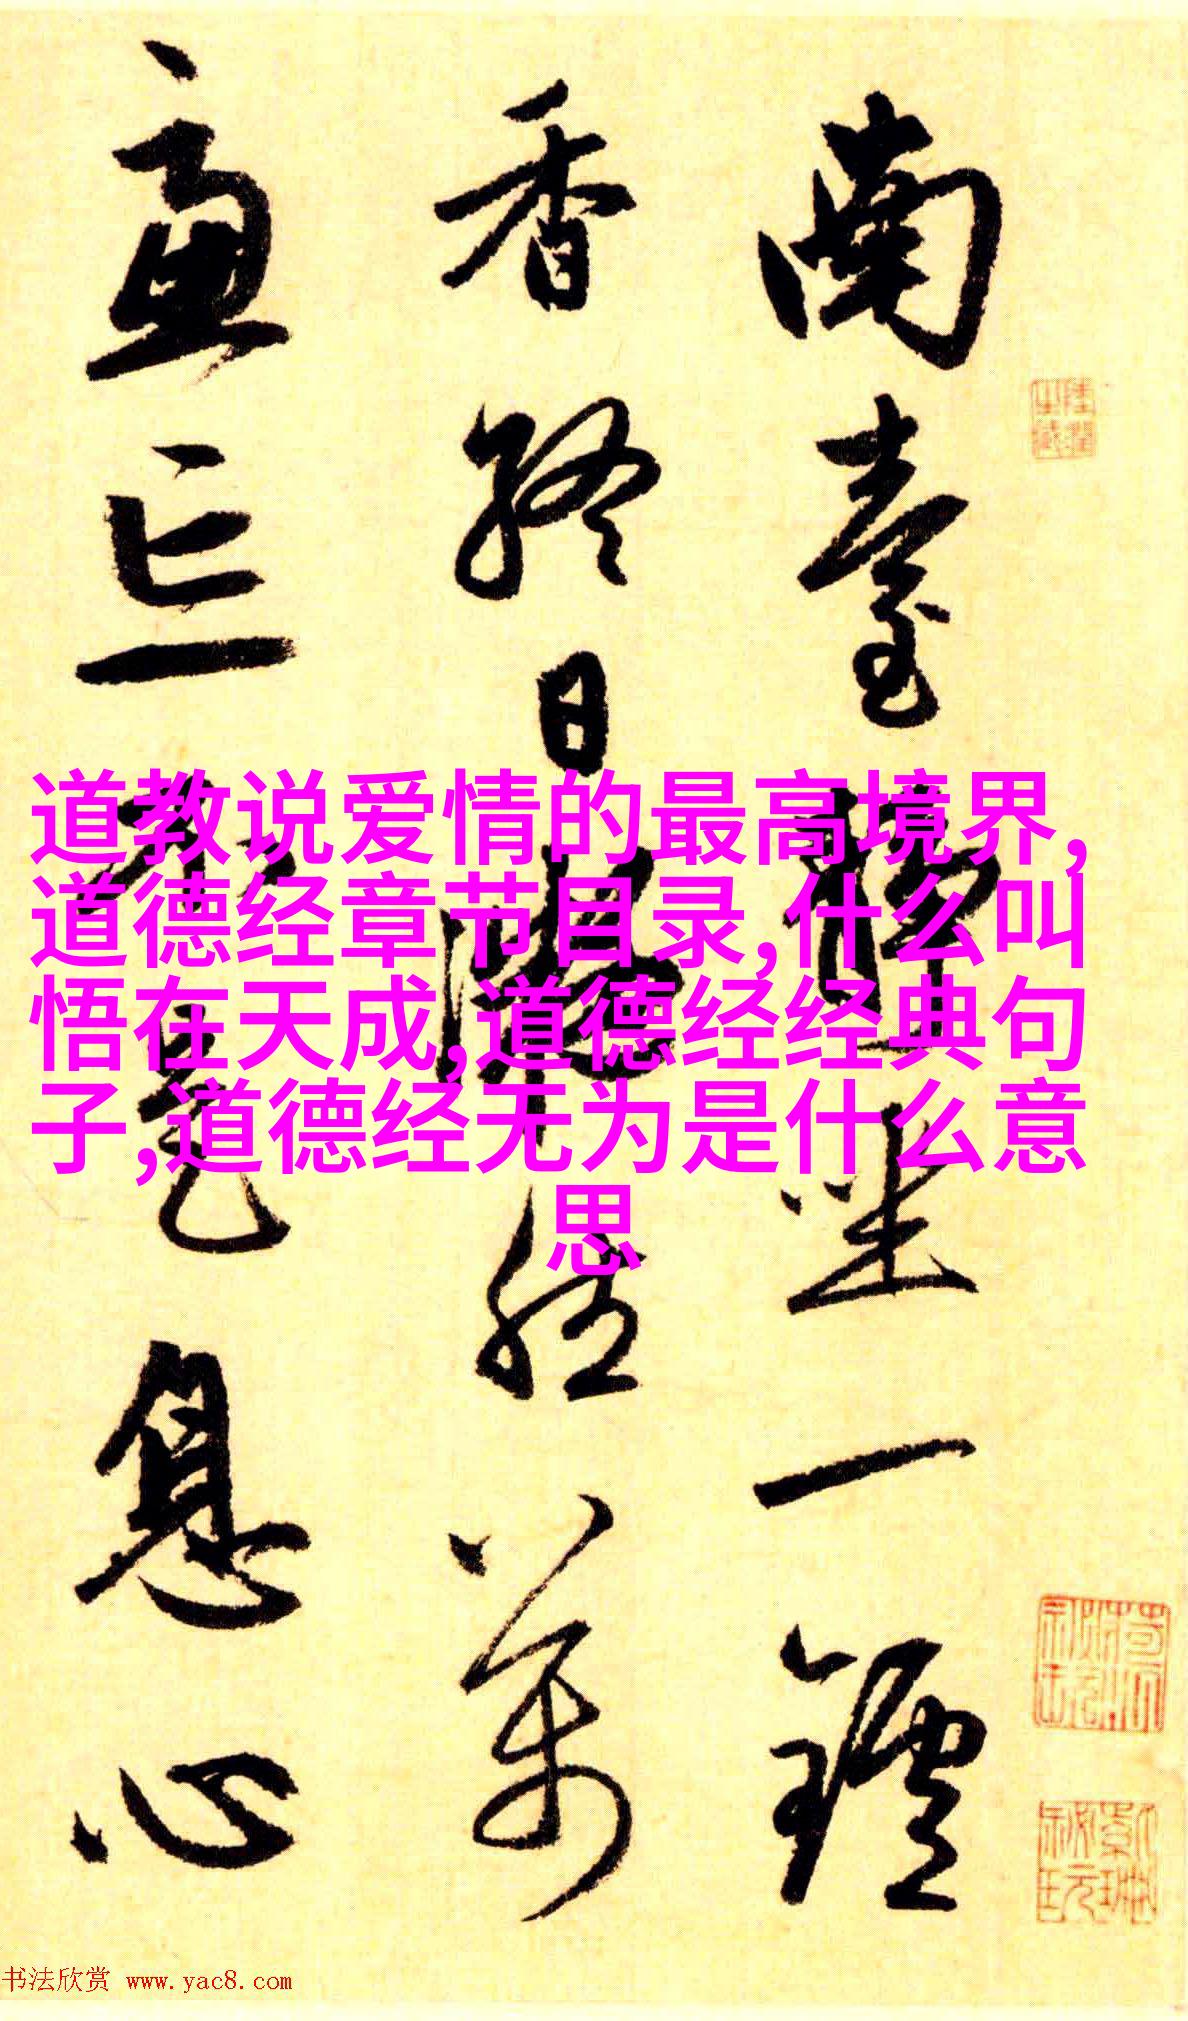 南臺靜坐一鑪
香終日凝然萬
慮忘不是息心
道教说爱情的最高境界,
道德经章节目录,什么叫
悟在天成,道德经经典句
子,道德经无为是什么意
思
书法欣赏 www.yac8.com